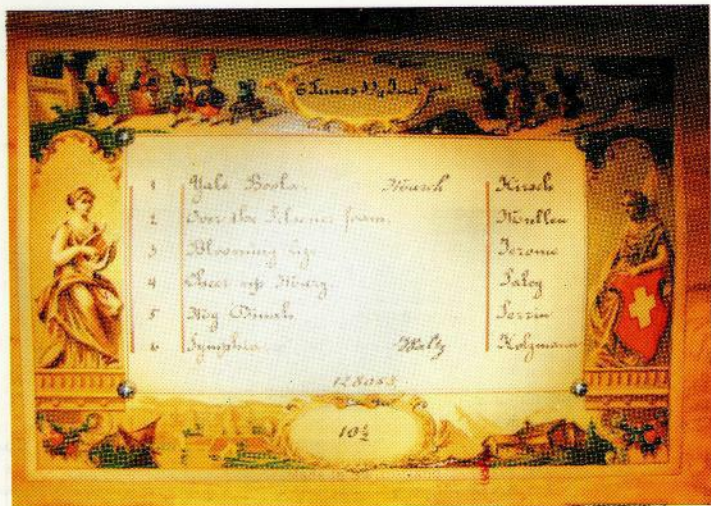 6 Tunes 3 1/4 Inch
1 Yale Boola. March Hirsch
2 Over the Pilsener foam.
3 Blooming Lize Jerome
4 Cheer up Mary Paley
5 My
6 Symphia. Waltz Holzmann
128053.
10½